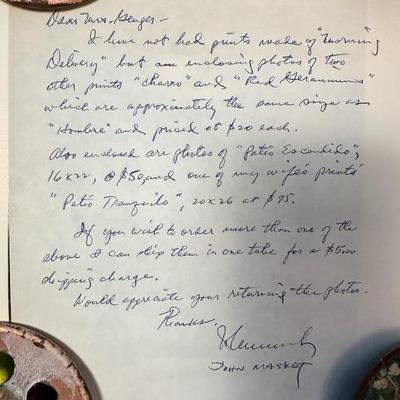 Dear Mrs. Genger -
I have not had prints made of "Morning
Delivery" but am enclosing photos of two
other prints "Charro" and "Red Geraniums"
which are approximately the same size as
"Hombre" and priced at $20 each.
Also enclosed are photos of "Patio Escondido",
16x22, @ $50, and one of my wife's prints
"Patio Tranquilo", 20x26 at $75.
If you wish to order more than one of the
above I can ship them in one tube for a $5.00
shipping charge.
Would appreciate your returning the photos.
Thanks,
JOHN